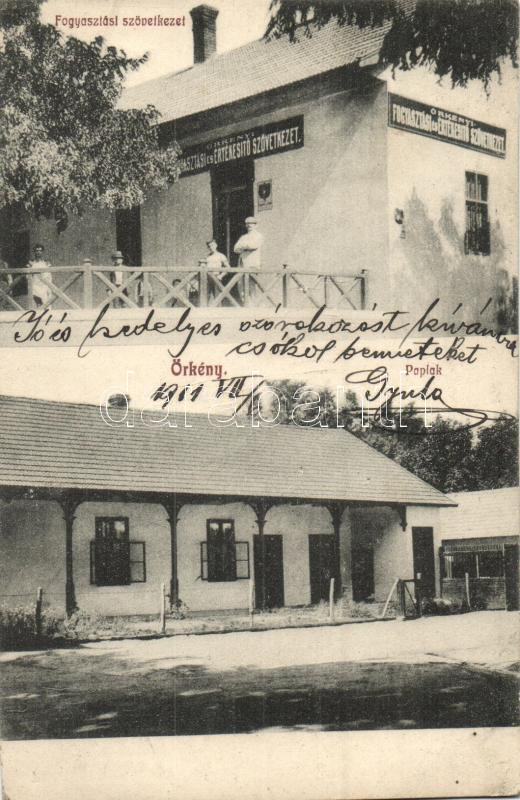 Fogyasztási szövetkezet
ÖRKÉNYI
FOGYASZTÁSI ÉS ÉRTÉKESÍTŐ SZÖVETKEZET.
ÖRKÉNYI
FOGYASZTÁSI ÉS ÉRTÉKESÍTŐ SZÖVETKEZET.
Jó és kedélyes szórakozást kívánva
csókol benneteket
Örkény.
Paplak
1911 VII/
Gyula
darabanth